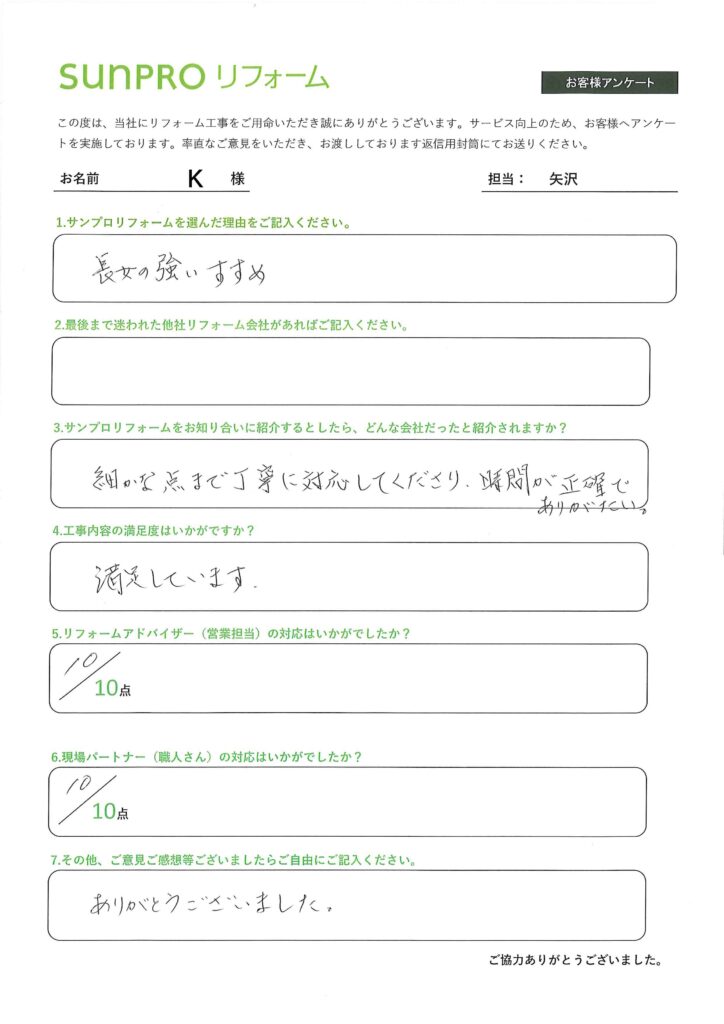 SUNPRO リフォーム
お客様アンケート
この度は、当社にリフォーム工事をご用命いただき誠にありがとうございます。サービス向上のため、お客様へアンケー
トを実施しております。率直なご意見をいただき、お渡ししております返信用封筒にてお送りください。
お名前 K 様 担当： 矢沢
1.サンプロリフォームを選んだ理由をご記入ください。
長女の強いすすめ
2.最後まで迷われた他社リフォーム会社があればご記入ください。
3.サンプロリフォームをお知り合いに紹介するとしたら、どんな会社だったと紹介されますか？
細かな点まで丁寧に対応してくださり、時間が正確で
ありがたい。
4.工事内容の満足度はいかがですか？
満足しています.
5.リフォームアドバイザー（営業担当）の対応はいかがでしたか？
10/
10点
6.現場パートナー（職人さん）の対応はいかがでしたか？
10/
10点
7.その他、ご意見ご感想等ございましたらご自由にご記入ください。
ありがとうございました。
ご協力ありがとうございました。